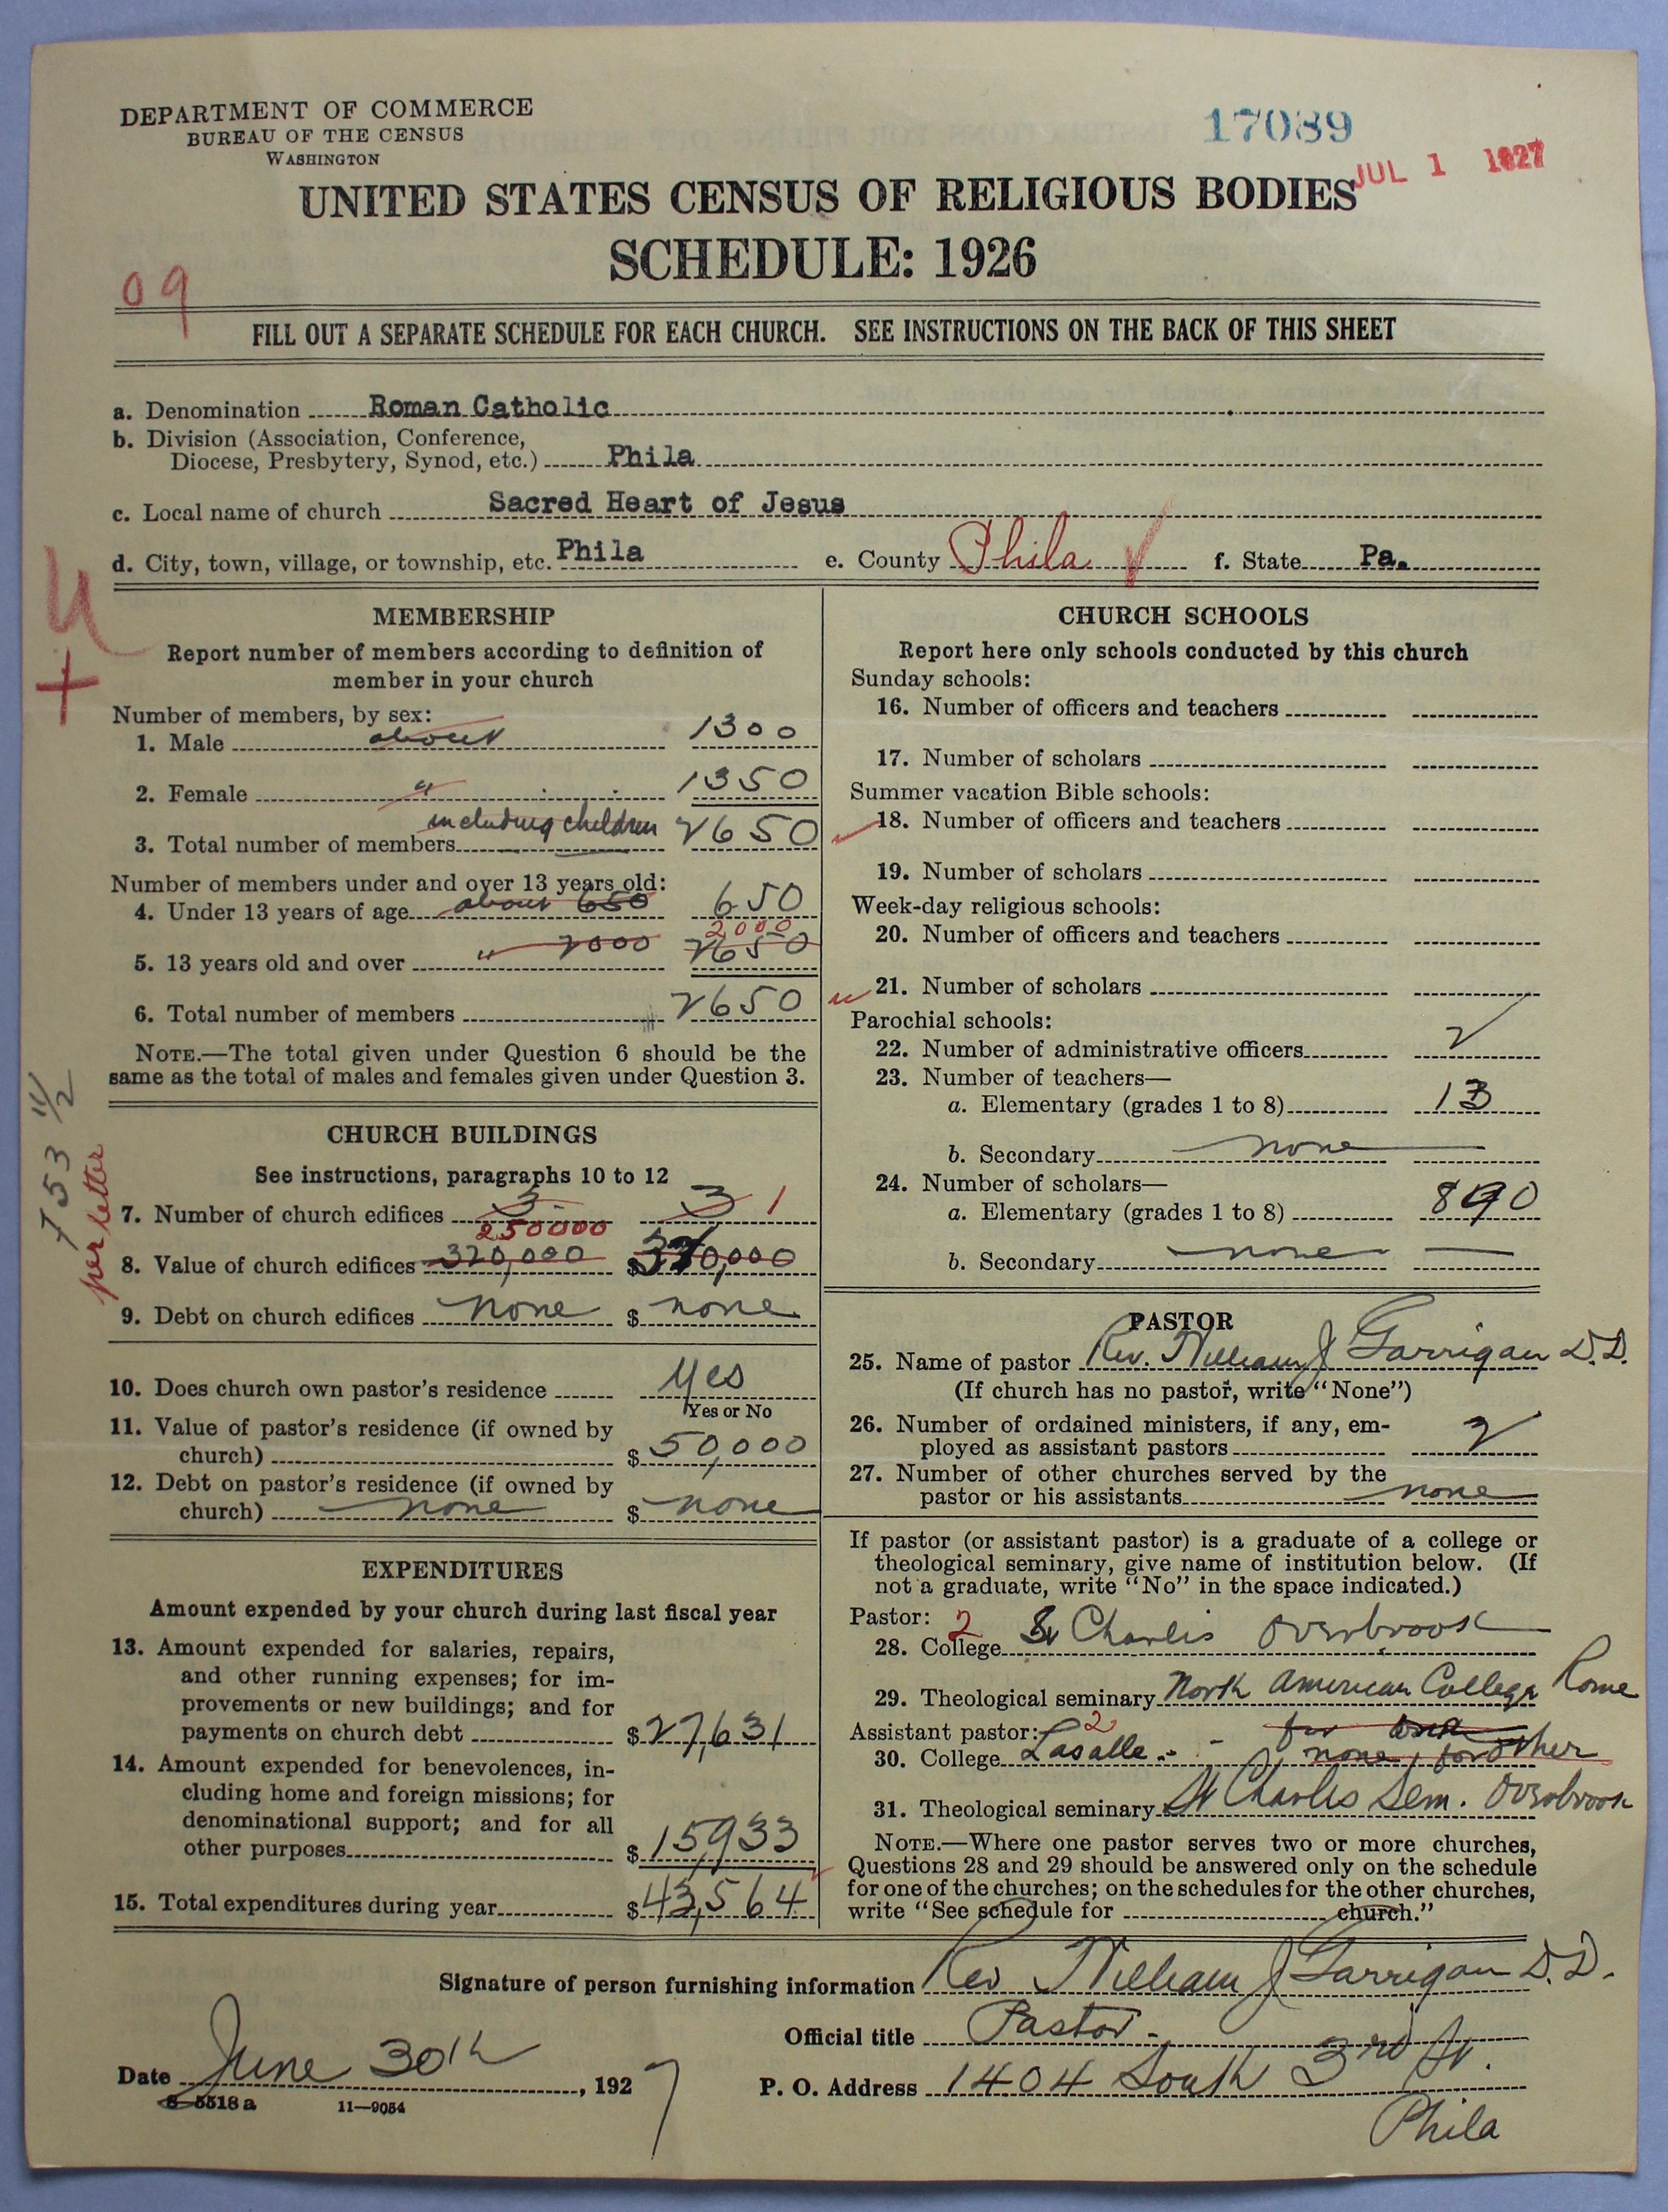 DEPARTMENT OF COMMERCE
BUREAU OF THE CENSUS
WASHINGTON
17089
JUL 1 1927
UNITED STATES CENSUS OF RELIGIOUS BODIES
SCHEDULE: 1926
09
FILL OUT A SEPARATE SCHEDULE FOR EACH CHURCH. SEE INSTRUCTIONS ON THE BACK OF THIS SHEET
a. Denomination Roman Catholic
b. Division (Association, Conference,
Diocese, Presbytery, Synod, etc.) Phila
c. Local name of church Sacred Heart of Jesus
d. City, town, village, or township, etc. Phila e. County Phila f. State Pa.
MEMBERSHIP
Report number of members according to definition of
member in your church
Number of members, by sex:
1. Male about 1300
2. Female " 1350
including children
3. Total number of members 2650
Number of members under and over 13 years old:
4. Under 13 years of age about 650 650
2000
5. 13 years old and over " 2000 2650
6. Total number of members 2650
NOTE.—The total given under Question 6 should be the
same as the total of males and females given under Question 3.
per letter
CHURCH BUILDINGS
See instructions, paragraphs 10 to 12
7. Number of church edifices 3 3 1
250000
8. Value of church edifices 320,000 $ 320,000
9. Debt on church edifices none $ none
10. Does church own pastor's residence yes
Yes or No
11. Value of pastor's residence (if owned by
church) $ 50,000
12. Debt on pastor's residence (if owned by
church) none $ none
EXPENDITURES
Amount expended by your church during last fiscal year
13. Amount expended for salaries, repairs,
and other running expenses; for im-
provements or new buildings; and for
payments on church debt $ 27,631
14. Amount expended for benevolences, in-
cluding home and foreign missions; for
denominational support; and for all
other purposes $ 15,933
15. Total expenditures during year $ 43,564
CHURCH SCHOOLS
Report here only schools conducted by this church
Sunday schools:
16. Number of officers and teachers
17. Number of scholars
Summer vacation Bible schools:
18. Number of officers and teachers
19. Number of scholars
Week-day religious schools:
20. Number of officers and teachers
21. Number of scholars
Parochial schools:
22. Number of administrative officers 2
23. Number of teachers—
a. Elementary (grades 1 to 8) 13
b. Secondary none
24. Number of scholars—
a. Elementary (grades 1 to 8) 890
b. Secondary none
PASTOR
25. Name of pastor Rev. William J Garrigan D.D.
(If church has no pastor, write "None")
26. Number of ordained ministers, if any, em-
ployed as assistant pastors 2
27. Number of other churches served by the
pastor or his assistants none
If pastor (or assistant pastor) is a graduate of a college or
theological seminary, give name of institution below. (If
not a graduate, write "No" in the space indicated.)
Pastor: 2
28. College St Charles Overbrook
29. Theological seminary North American College Rome
Assistant pastor: 2 for one
30. College Lasalle none, for other
31. Theological seminary St Charles Sem. Overbrook
NOTE.—Where one pastor serves two or more churches,
Questions 28 and 29 should be answered only on the schedule
for one of the churches; on the schedules for the other churches,
write "See schedule for church."
Signature of person furnishing information Rev William J Garrigan D.D.
Official title Pastor
Date June 30th, 1927 P. O. Address 1404 South 3rd St.
Phila
8—5518a 11—9054